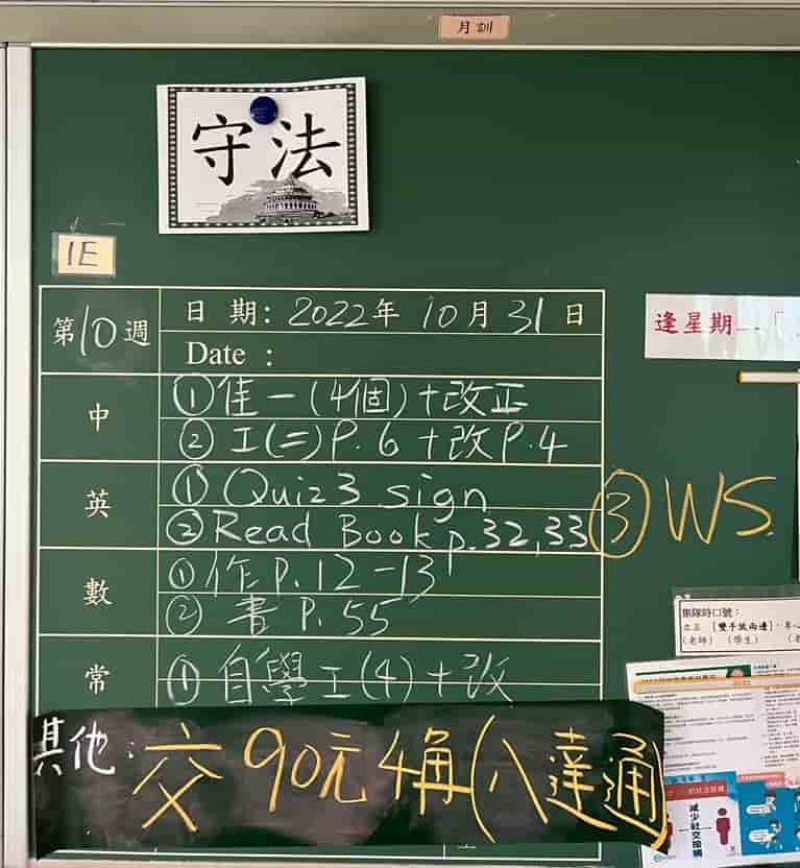 月訓
守法
1E
第10週
日期：2022年10月31日
Date：
中
①佳一(4個)+改正
②工(二)P.6+改P.4
英
①Quiz3 sign
②Read Book p.32,33
③WS
數
①作P.12-13
②書P.55
常
①自學工(4)+改
其他：交90元4角(八達通)
逢星期一
集隊時口號：
立正 [雙手放兩邊]
(老師) (學生)
減少社交接觸